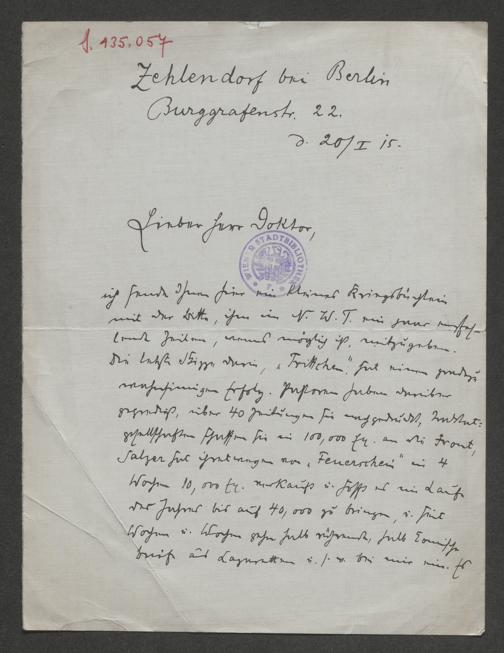 J. 135.057
Zehlendorf bei Berlin
Burggrafenstr. 22.
d. 20/I 15.
Lieber Herr Doktor,
WIENER STADTBIBLIOTHEK
ich sende Ihnen hier ein kleines Kriegsbüchlein
mit der Bitte, ihm im N. W. T. ein paar empfeh-
lende Zeilen, wenns möglich ist, mitzugeben.
Die letzte Skizze darin, „Frittchen“, hat einen geradezu
wahnsinnigen Erfolg. Pastoren haben darüber
gepredigt, über 40 Zeitungen sie nachgedruckt,
gesellschaften schaffen sie in 100,000 Ex. an die Front,
Salzer hat ihretwegen von „Feuerschein“ in 4
Wochen 10,000 Ex. verkauft u. hofft es im Laufe
des Jahres bis auf 40,000 zu bringen, u. seit
Wochen u. Wochen gehn halb rührende, halb komische
briefe aus Lazaretten u. s. w. bei mir ein. Es